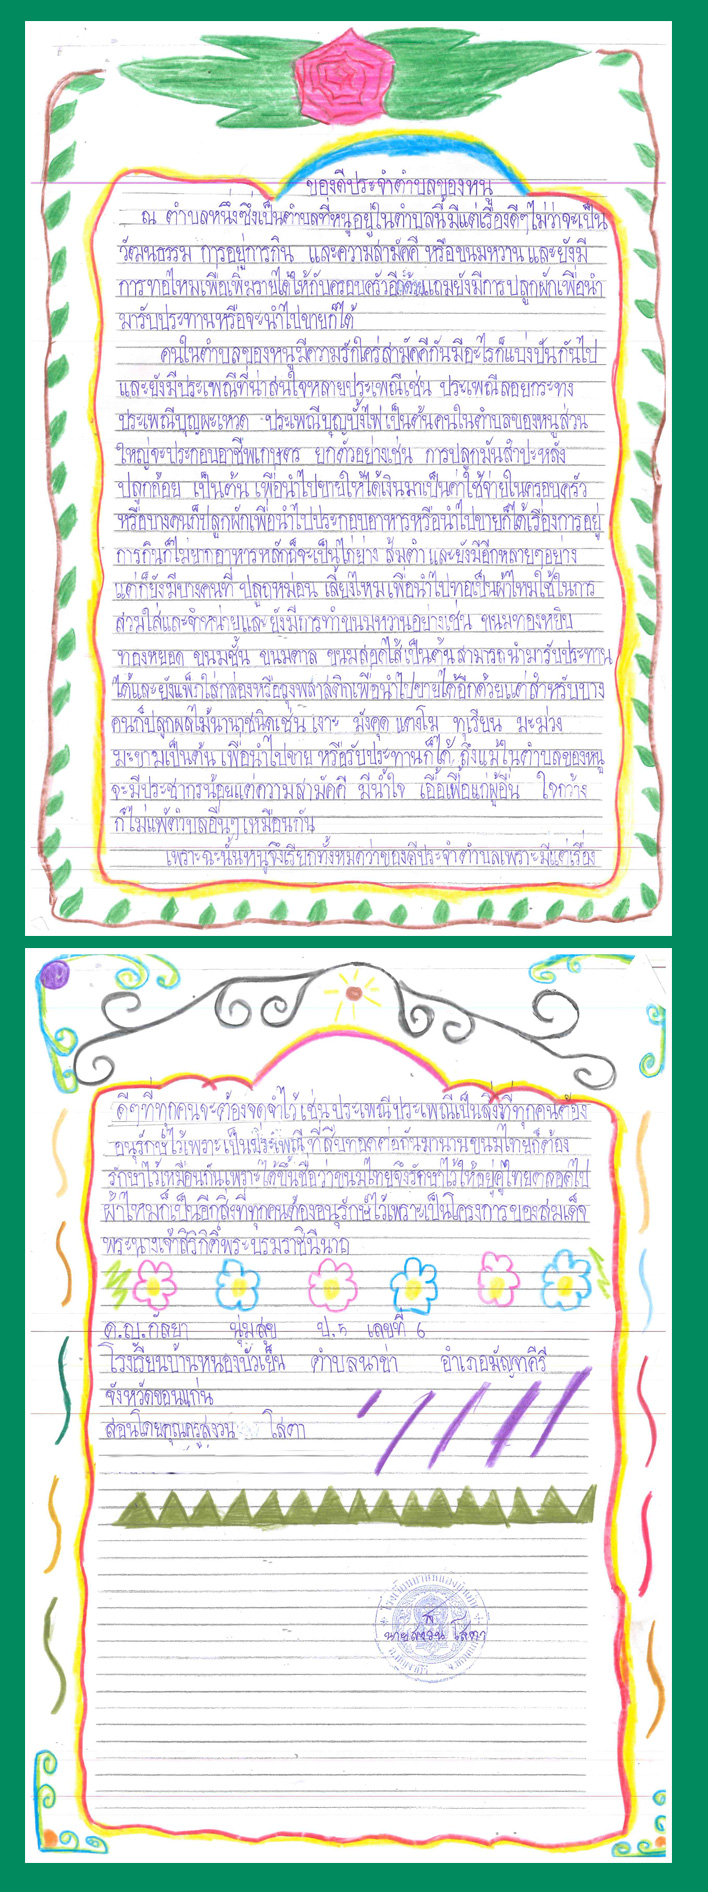 ของดีประจำตำบลของหนู
ณ ตำบลหนึ่งซึ่งเป็นตำบลที่หนูอยู่ในตำบลนี้มีแต่เรื่องดีๆไม่ว่าจะเป็น
วัฒนธรรม การอยู่การกิน และความสามัคคี หรือขนมหวาน และยังมี
การทอไหมเพื่อเพิ่มรายได้ให้กับครอบครัวอีกด้วยแถมยังมีการปลูกผักเพื่อนำ
มารับประทานหรือจะนำไปขายก็ได้
คนในตำบลของหนูมีความรักใคร่สามัคคีกันมีอะไรก็แบ่งปันกันไป
และยังมีประเพณีที่น่าสนใจหลายประเพณีเช่น ประเพณีลอยกระทง
ประเพณีบุญผะเหวด ประเพณีบุญบั้งไฟ เป็นต้นคนในตำบลของหนูส่วน
ใหญ่จะประกอบอาชีพเกษตร ยกตัวอย่างเช่น การปลูกมันสำปะหลัง
ปลูกอ้อย เป็นต้น เพื่อนำไปขายให้ได้เงินมาเป็นค่าใช้จ่ายในครอบครัว
หรือบางคนก็ปลูกผักเพื่อนำไปประกอบอาหารหรือนำไปขายก็ได้เรื่องการอยู่
การกินก็ไม่ยากอาหารหลักก็จะเป็นไก่ย่าง ส้มตำ และยังมีอีกหลายๆอย่าง
แต่ก็ยังมีบางคนที่ ปลูกหม่อน เลี้ยงไหม เพื่อนำไปทอเป็นผ้าไหมใช้ในการ
สวมใส่และจำหน่ายและยังมีการทำขนมหวานอย่างเช่น ขนมทองหยิบ
ทองหยอด ขนมชั้น ขนมตาล ขนมสอดไส้ เป็นต้น สามารถนำมารับประทาน
ได้และยังแพ็กใส่กล่องหรือถุงพลาสติกเพื่อนำไปขายได้อีกด้วยแต่สำหรับบาง
คนก็ปลูกผลไม้นานาชนิดเช่น เงาะ มังคุด แตงโม ทุเรียน มะม่วง
มะขามเป็นต้น เพื่อนำไปขาย หรือรับประทานก็ได้ ถึงแม้ในตำบลของหนู
จะมีประชากรน้อยแต่ความสามัคคี มีน้ำใจ เอื้อเฟื้อแก่ผู้อื่น ใจกว้าง
ก็ไม่แพ้ตำบลอื่นๆเหมือนกัน
เพราะฉะนั้นหนูจึงเรียกทั้งหมดว่าของดีประจำตำบลเพราะมีแต่เรื่อง
ดีๆที่ทุกคนจะต้องจดจำไว้ เช่น ประเพณี ประเพณีเป็นสิ่งที่ทุกคนต้อง
อนุรักษ์ไว้เพราะเป็นประเพณี ที่สืบทอดต่อกันมานานขนมไทยก็ต้อง
รักษาไว้เหมือนกันเพราะได้ขึ้นชื่อว่าขนมไทยจึงรักษาไว้ให้อยู่คู่ไทยตลอดไป
ผ้าไหมก็เป็นอีกสิ่งที่ทุกคนต้องอนุรักษ์ไว้เพราะเป็นโครงการของสมเด็จ
พระนางเจ้าสิริกิติ์พระบรมราชินีนาถ
ด.ญ.กัลยา นุ่มสุข ป.5 เลขที่ 6
โรงเรียนบ้านหนองบัวเย็น ตำบลนาข่า อำเภอมัญจาคีรี
จังหวัดขอนแก่น
สอนโดยคุณครูสงวน โสดา
นายสงวน โสดา